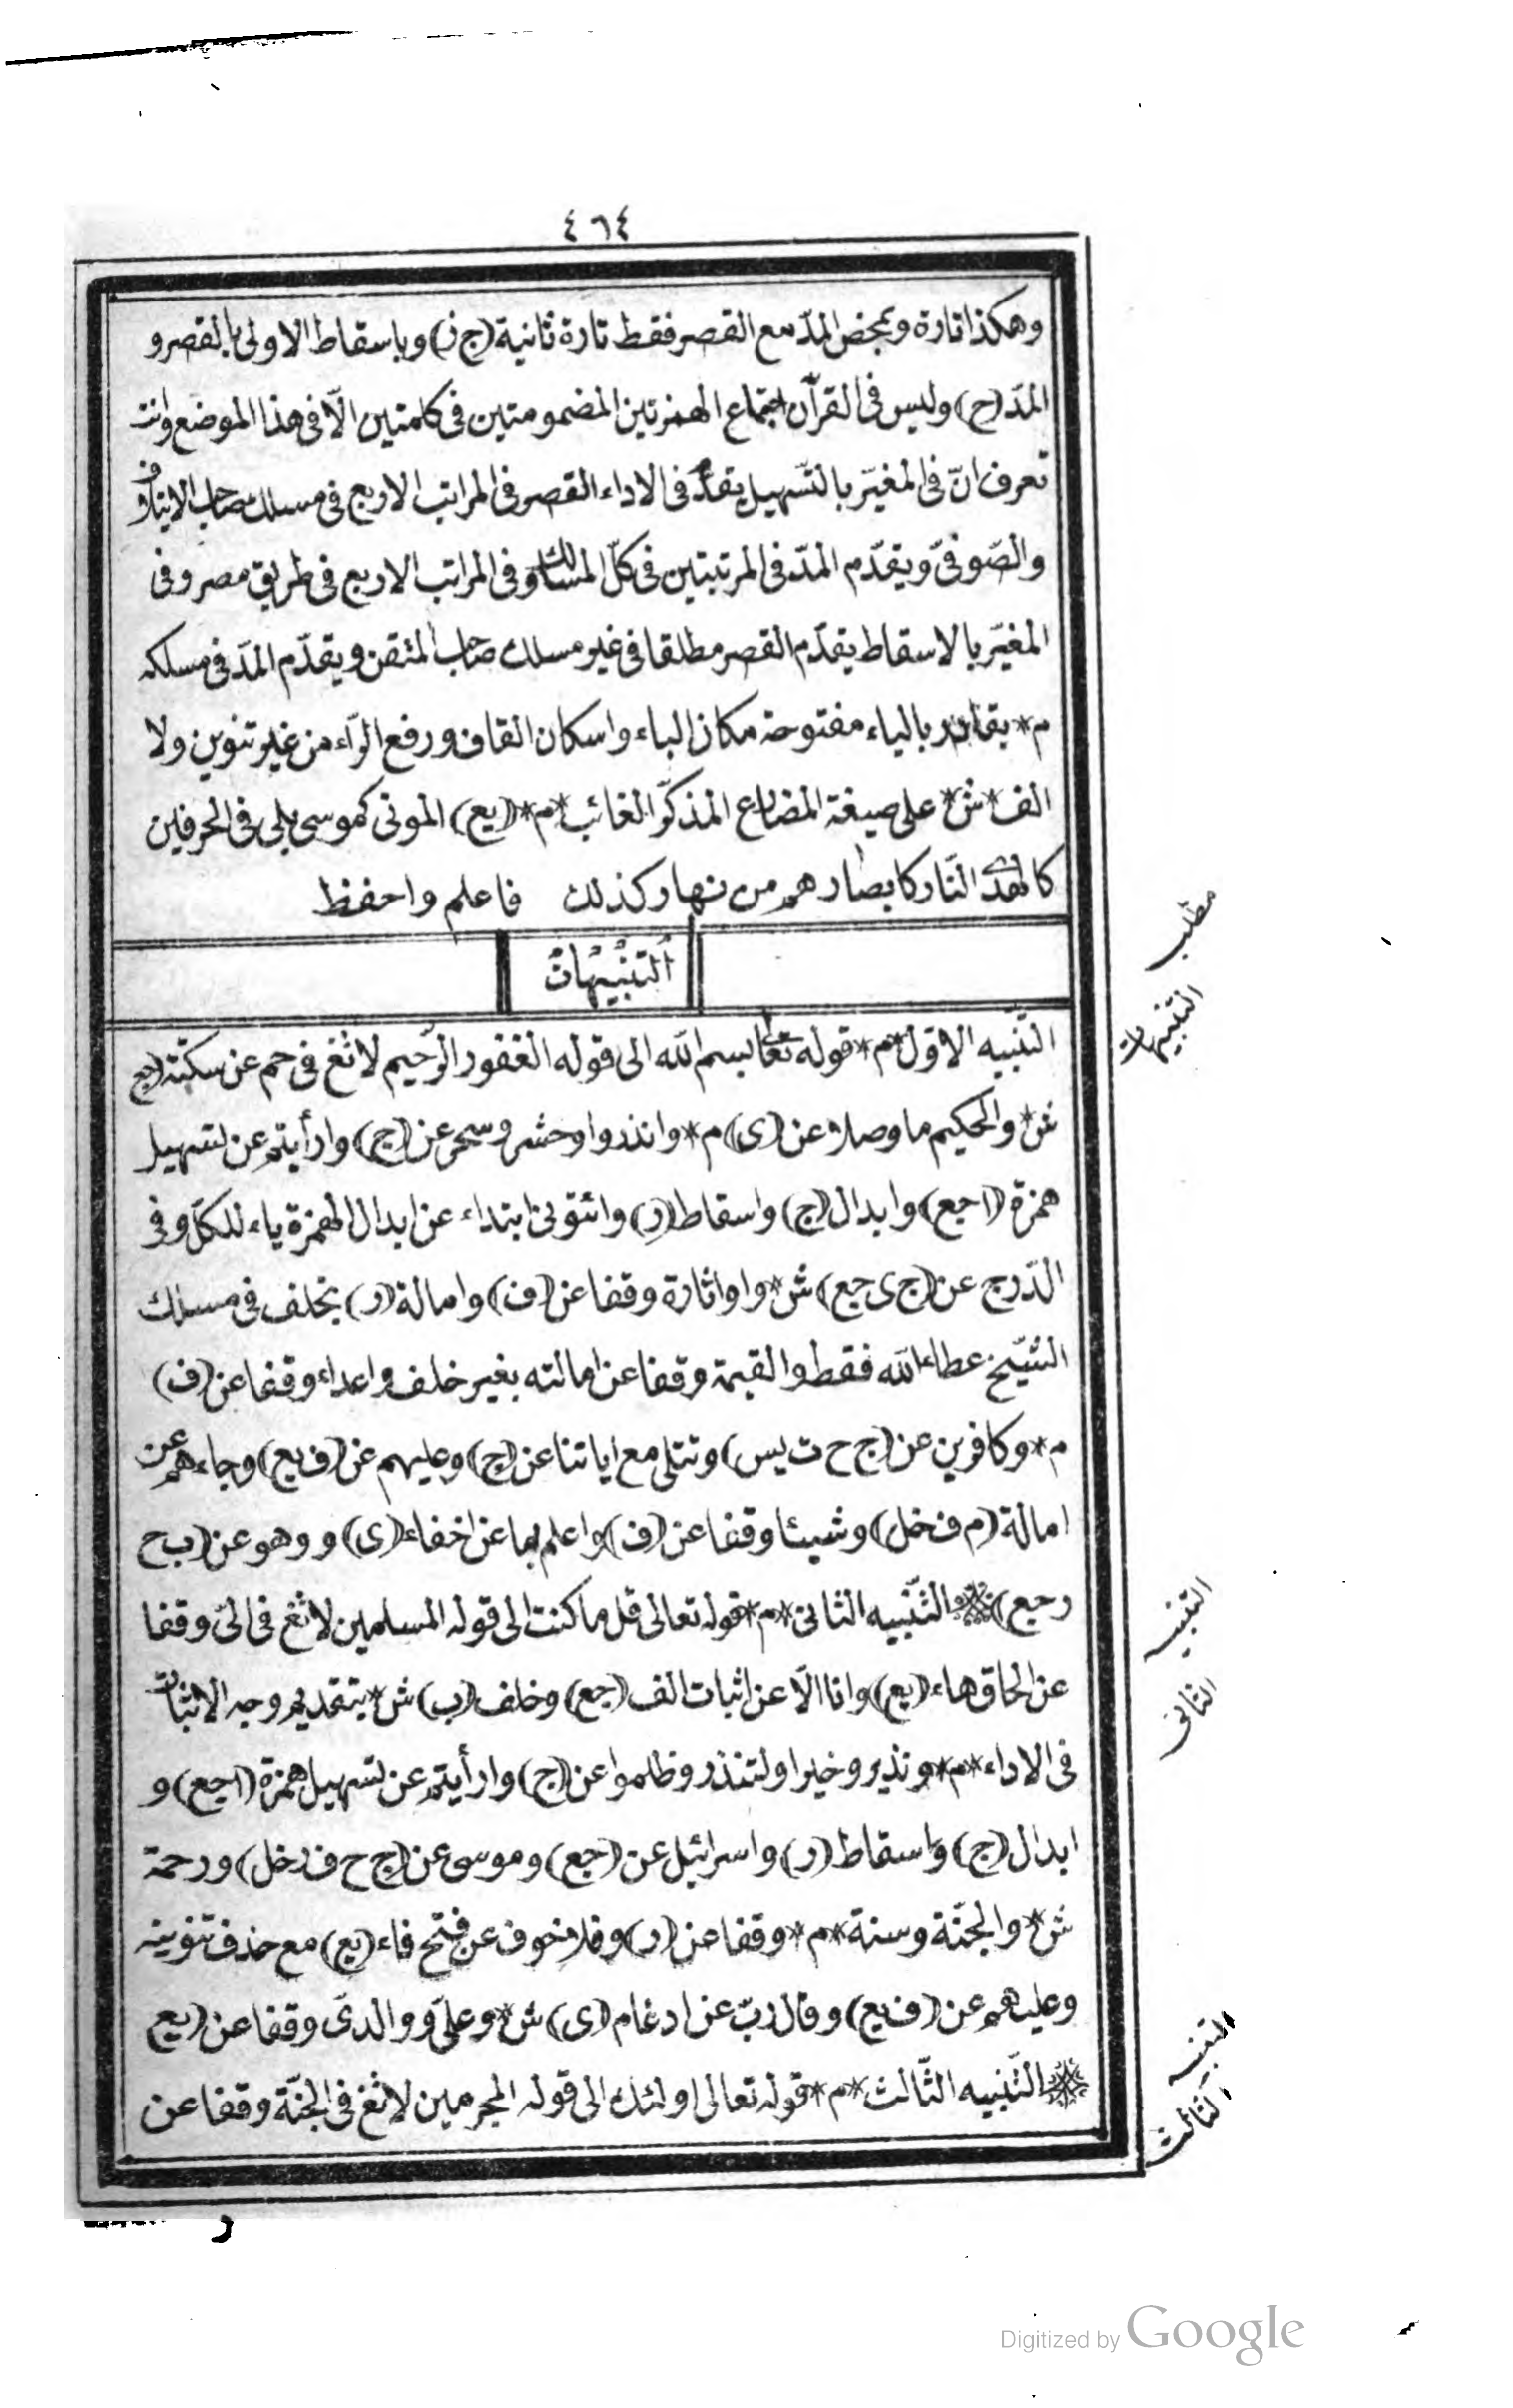 ٤٦٤
وهكذا تارة وبمحض المدّ مع القصر فقط تارة ثانية (ج ز) وباسقاط الاولى بالقصر و
المدّ (ح) وليس فى القرآن اجتماع الهمزتين المضمومتين فى كلمتين الّا فى هذا الموضع وانت
تعرف انّ فى المغيّر بالتّسهيل يقدّم فى الاداء القصر فى المراتب الاربع فى مسلك صاحب الايتلاف
والصّوفىّ ويقدّم المدّ فى المرتبتين فى كلّ المسالك وفى المراتب الاربع فى طريق مصر وفى
المغيّر بالاسقاط يقدّم القصر مطلقا فى غير مسلك صاحب المتقن ويقدّم المدّ فى مسلكه
م * بقادر بالياء مفتوحة مكان الباء واسكان القاف ورفع الرّاء من غير تنوين ولا
الف * ش * على صيغة المضارع المذكّر الغائب * م * (يع) الموتى كموسى بلى فى الحرفين
كالهدى النّار كابصارهم من نهار كذلك فاعلم واحفظ
اَلتّنْبِيْهَاتُ
مطلب
التنبيهات
التّنبيه الاوّل * م * قوله تعالى بسم الله الى قوله الغفور الرّحيم لا تغ فى حم عن سكتة (جع
ش * والحكيم ما وصلا عن (ى) م * وانذروا وحشر وسحر عن (ج) وارأيتم عن تسهيل
همزة (اجع) وابدال (ج) واسقاط (ر) وائتونى ابتداء عن ابدال الهمزة ياء للكلّ وفى
الدّرج عن (ج ى جع) ش * واو اثارة وقفا عن (ف) وامالة (ر) بخلف فى مسلك
الشّيخ عطاء الله فقط والقيمة وقفا عن امالته بغير خلف واعداء وقفا عن (ف)
م * وكافرين عن (ج ح ت يس) وتتلى مع اياتنا عن (ج) وعليهم عن (ف يع) وجاءهم عن
امالة (م ف خل) وشيئا وقفا عن (ف) واعلم بما عن اخفاء (ى) و وهو عن (ب ح
ر جع) التّنبيه الثانى * م * قوله تعالى قل ما كنت الى قوله المسلمين لا تغ فى الىّ وقفا
التنبيه
الثانى
عن الحاق هاء (يع) وانا الّا عن اثبات الف (جع) وخلف (ب) ش * بتقديم وجه الاثبات
فى الاداء * م * ونذير وخيرا ولتنذر وظلموا عن (ج) وارأيتم عن تسهيل همزة (اجع) و
ابدال (ج) واسقاط (ر) واسرائيل عن (جع) وموسى عن (ج ح ف ر خل) ورحمة
ش * والجنّة وسنة * م * وقفا عن (ر) وفلا خوف عن فتح فاء (يع) مع حذف تنوينه
وعليهم عن (ف يع) وقال ربّ عن ادغام (ى) ش * وعلىّ ووالدىّ وقفا عن (يع
التّنبيه الثّالث * م * قوله تعالى اولئك الى قوله المجرمين لا تغ فى الجنّة وقفا عن
التنبيه
الثالث
Digitized by Google